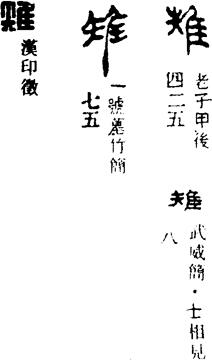 雉
老子甲後
四二五
雉
武威簡·士相見
八
雉
一號墓竹簡
七五
雉
漢印徵